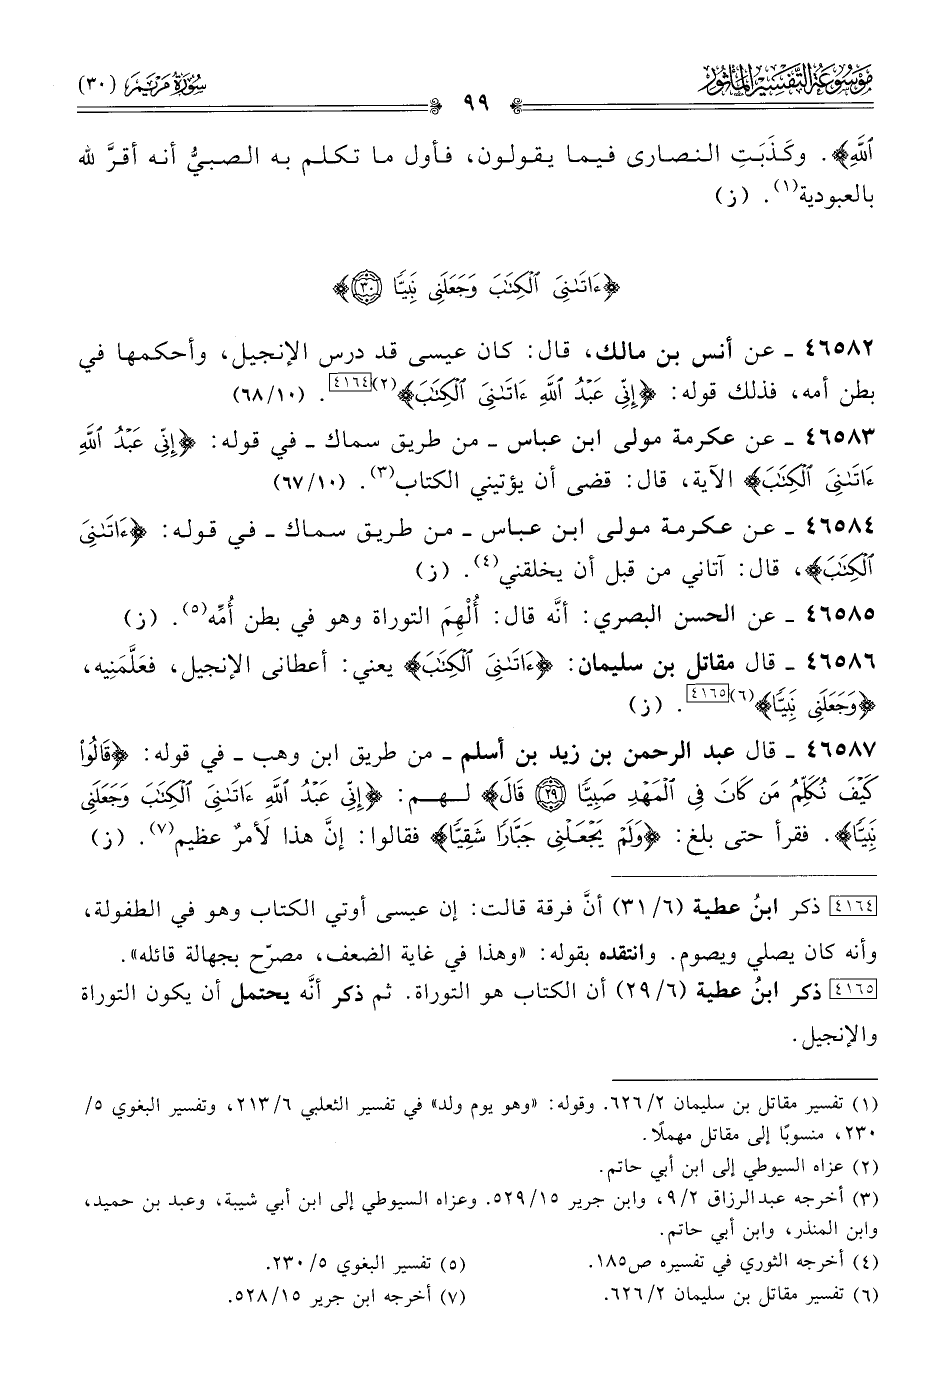 مَوْسُوعَةُ التَّفْسِيرِ المَأْثُور
٩٩
سُورَةُ مَرْيَمَ (٣٠)
ٱللَّهِ﴾. وكَذَبَتِ النصارى فيما يقولون، فأول ما تكلم به الصبيُّ أنه أقرَّ لله
بالعبودية(١). (ز)
﴿ءَاتَىٰنِيَ ٱلْكِتَٰبَ وَجَعَلَنِى نَبِيًّا ٣٠﴾
٤٦٥٨٢ ـ عن أنس بن مالك، قال: كان عيسى قد درس الإنجيل، وأحكمها في
بطن أمه، فذلك قوله: ﴿إِنِّى عَبْدُ ٱللَّهِ ءَاتَىٰنِيَ ٱلْكِتَٰبَ﴾(٢)[٤١٦٤]. (٦٨/١٠)
٤٦٥٨٣ ـ عن عكرمة مولى ابن عباس ـ من طريق سماك ـ في قوله: ﴿إِنِّى عَبْدُ ٱللَّهِ
ءَاتَىٰنِيَ ٱلْكِتَٰبَ﴾ الآية، قال: قضى أن يؤتيني الكتاب(٣). (٦٧/١٠)
٤٦٥٨٤ ـ عن عكرمة مولى ابن عباس ـ من طريق سماك ـ في قوله: ﴿ءَاتَىٰنِيَ
ٱلْكِتَٰبَ﴾، قال: آتاني من قبل أن يخلقني(٤). (ز)
٤٦٥٨٥ ـ عن الحسن البصري: أنَّه قال: أُلْهِمَ التوراة وهو في بطن أُمِّه(٥). (ز)
٤٦٥٨٦ ـ قال مقاتل بن سليمان: ﴿ءَاتَىٰنِيَ ٱلْكِتَٰبَ﴾ يعني: أعطاني الإنجيل، فعَلَّمَنِيه،
﴿وَجَعَلَنِى نَبِيًّا﴾(٦)[٤١٦٥]. (ز)
٤٦٥٨٧ ـ قال عبد الرحمن بن زيد بن أسلم ـ من طريق ابن وهب ـ في قوله: ﴿قَالُوا۟
كَيْفَ نُكَلِّمُ مَن كَانَ فِى ٱلْمَهْدِ صَبِيًّا ٢٩ قَالَ﴾ لـهـم: ﴿إِنِّى عَبْدُ ٱللَّهِ ءَاتَىٰنِيَ ٱلْكِتَٰبَ وَجَعَلَنِى
نَبِيًّا﴾. فقرأ حتى بلغ: ﴿وَلَمْ يَجْعَلْنِى جَبَّارًا شَقِيًّا﴾ فقالوا: إنَّ هذا لَأمرٌ عظيم(٧). (ز)
[٤١٦٤] ذكر ابنُ عطية (٣١/٦) أنَّ فرقة قالت: إن عيسى أوتي الكتاب وهو في الطفولة،
وأنه كان يصلي ويصوم. وانتقده بقوله: «وهذا في غاية الضعف، مصرّح بجهالة قائله».
[٤١٦٥] ذكر ابنُ عطية (٢٩/٦) أن الكتاب هو التوراة. ثم ذكر أنَّه يحتمل أن يكون التوراة
والإنجيل.
(١) تفسير مقاتل بن سليمان ٦٢٦/٢. وقوله: «وهو يوم ولد» في تفسير الثعلبي ٢١٣/٦، وتفسير البغوي ٥/
٢٣٠، منسوبًا إلى مقاتل مهملًا.
(٢) عزاه السيوطي إلى ابن أبي حاتم.
(٣) أخرجه عبدالرزاق ٩/٢، وابن جرير ٥٢٩/١٥. وعزاه السيوطي إلى ابن أبي شيبة، وعبد بن حميد،
وابن المنذر، وابن أبي حاتم.
(٤) أخرجه الثوري في تفسيره ص١٨٥.
(٥) تفسير البغوي ٢٣٠/٥.
(٦) تفسير مقاتل بن سليمان ٦٢٦/٢.
(٧) أخرجه ابن جرير ٥٢٨/١٥.